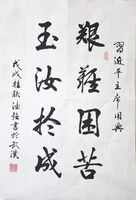 習近平主席用典
艱難困苦
玉汝於成
戊戌桂秋浩強書於武漢